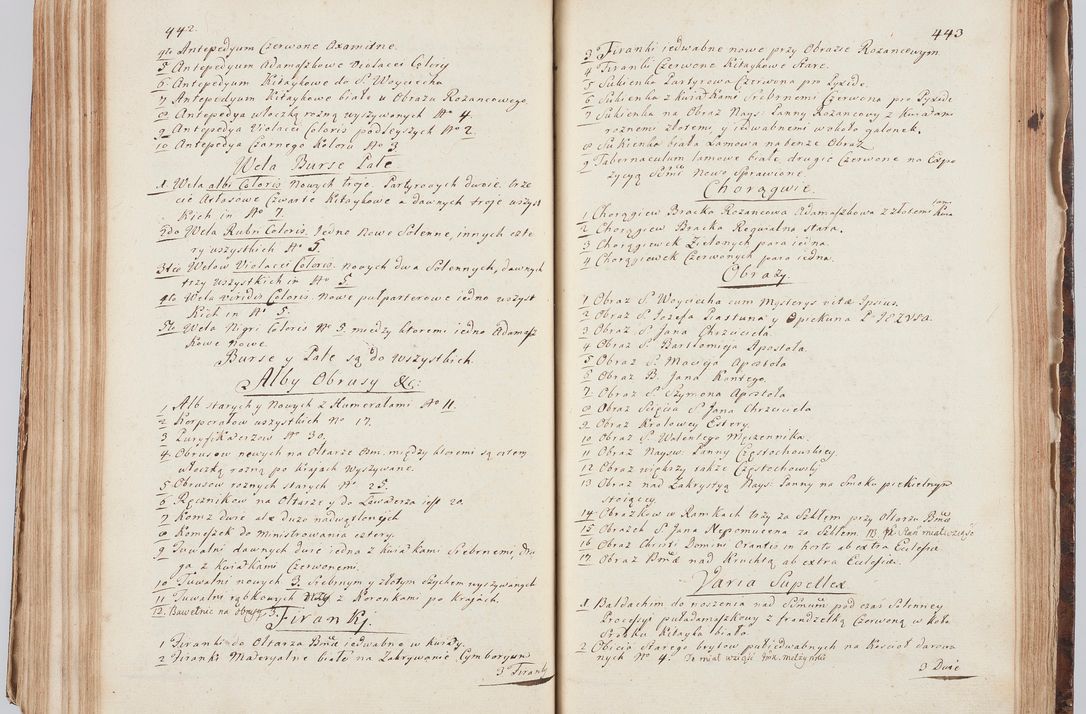 442.
4to Antepedyum Czerwone Axamitne.
5 Antepedyum Adamaszkowe Violacei Coloris
6 Antepedyum Kitaykowe do S. Woyciecha
7 Antepedyum Kitaykowe białe u Obraza Rożancowego
8 Antepedya włoczką rożną wyszywanych No 4.
9 Antepedya Violacei Coloris podleyszych No 2.
10 Antepedya Czarnego Koloru No 3
Wela Burse Pale
1 Wela albi Coloris Nowych troje. Partyrowych dwoie, trze
cie Atłasowe Czwarte Kitaykowe a dawnych troje wszyst
kich in No 7.
2do Wela Rubri Coloris. Jedno Nowe Solenne, innych czte
ry wszystkich No 5.
3tio Welow Violacei Coloris. nowych dwa Solennych, dawnych
trzy wszystkich in No 5
4to Wela viridis Coloris. Nowe pułparterowe iedno wszyst
kich in No 5.
5to Wela Nigri Coloris No 5. między ktoremi iedno Adamasz
kowe nowe
Burse y Pale są do wszystkich.
Alby Obrusy &c:
1 Alb starych y Nowych z Humerałami No 11.
2 Korporałow wszystkich No 17.
3 Puryfikaterzow No 30.
4 Obrusow nowych na Ołtarze między ktoremi są cztery
włoczką rożną po krajach wyszywane.
5 Obrusow rożnych starych No 25.
6 Ręcznikow na Ołtarze y do Lawaterza jest 20.
7 Komż dwie ale dużo nadwątlonych
8 Komeżek do Ministrowania cztery.
9 Tuwalni dawnych dwie iedna z kwiatkami Srebrnemi, Dru
ga z kwiatkami Czerwonemi.
10 Tuwalni nowych 3. Srebrnym y złotym Szychem wyszywanych
11 Tuwalni rąbkowych z Koronkami po krajach.
12. Bawełnic na obrusy 3.
Firanki
1 Firanki do Ołtarza Bmae iedwabne w kwiaty.
2 Firanki Materyalne białe na Zakrywanie Cymboryum
3 Firanki
443
3 Firanki iedwabne nowe przy Obrazie Rożancowym
4 Firanki Czerwone Kitaykowe Stare.
5 Sukienka Partyrowa Czerwona pro Pyxide.
6 Sukienka z kwiatkami Srebrnemi Czerwona pro Pyxide
7 Sukienka na Obraz Nays: Panny Rożancowy z kwiatami
rożnemi złotemi, y iedwabnemi wokoło galonek.
8 Sukienka biała Lamowa na tenże Obraz
9 Tabernaculum lamowe białe, drugie Czerwone na Expo
zycyą Ssmi Nowo Sprawione.
Chorągwie.
1 Chorągiew Bracka Rożancowa Adamaszkowa z złotemi
2 Chorągiew Bracka Requialna stara.
3 Chorągiewek Zielonych para iedna.
4 Chorągiewek Czerwonych para iedna.
Obrazy
1 Obraz S. Woyciecha cum Mysterys vitae Ipsius.
2 Obraz S. Jozefa Piastuna y Opiekuna P. JEZUSA.
3 Obraz S. Jana Chrzciciela
4 Obraz S. Bartłomieja Apostoła.
5 Obraz S. Macieja Apostoła
6 Obraz B. Jana Kantego.
7 Obraz S. Szymona Apostoła
8 Obraz Scięcia S. Jana Chrzciciela
9 Obraz Krolowey Estery.
10 Obraz S. Walentego Męczennika.
11 Obraz Nays. Panny Częstochowskiey
12 Obraz większy także Częstochowski
13 Obraz nad Zakrystyą Nays: Panny na Smoku piekielnym
stoiący.
14 Obrazkow w Ramkach trzy za Szkłem przy Ołtarzu Bmae
15 Obrazek S. Jana Nepomucena za Szkłem.
16 Obraz Christi Domini Orantis in horto ab extra Ecclesia
17 Obraz Bmae nad Kruchtą ab extra Ecclesiae.
Varia Supellex
1 Baldachim do noszenia nad Ssmum pod czas Solenney
Processyi puładamaszkowy z frandzelką Czerwoną w koło
Kitayka biała
2 Obicia Starego brytow pułiedwabnych na Kosciół darowa
nych No 4. Te miał wziąść
3 Dwie